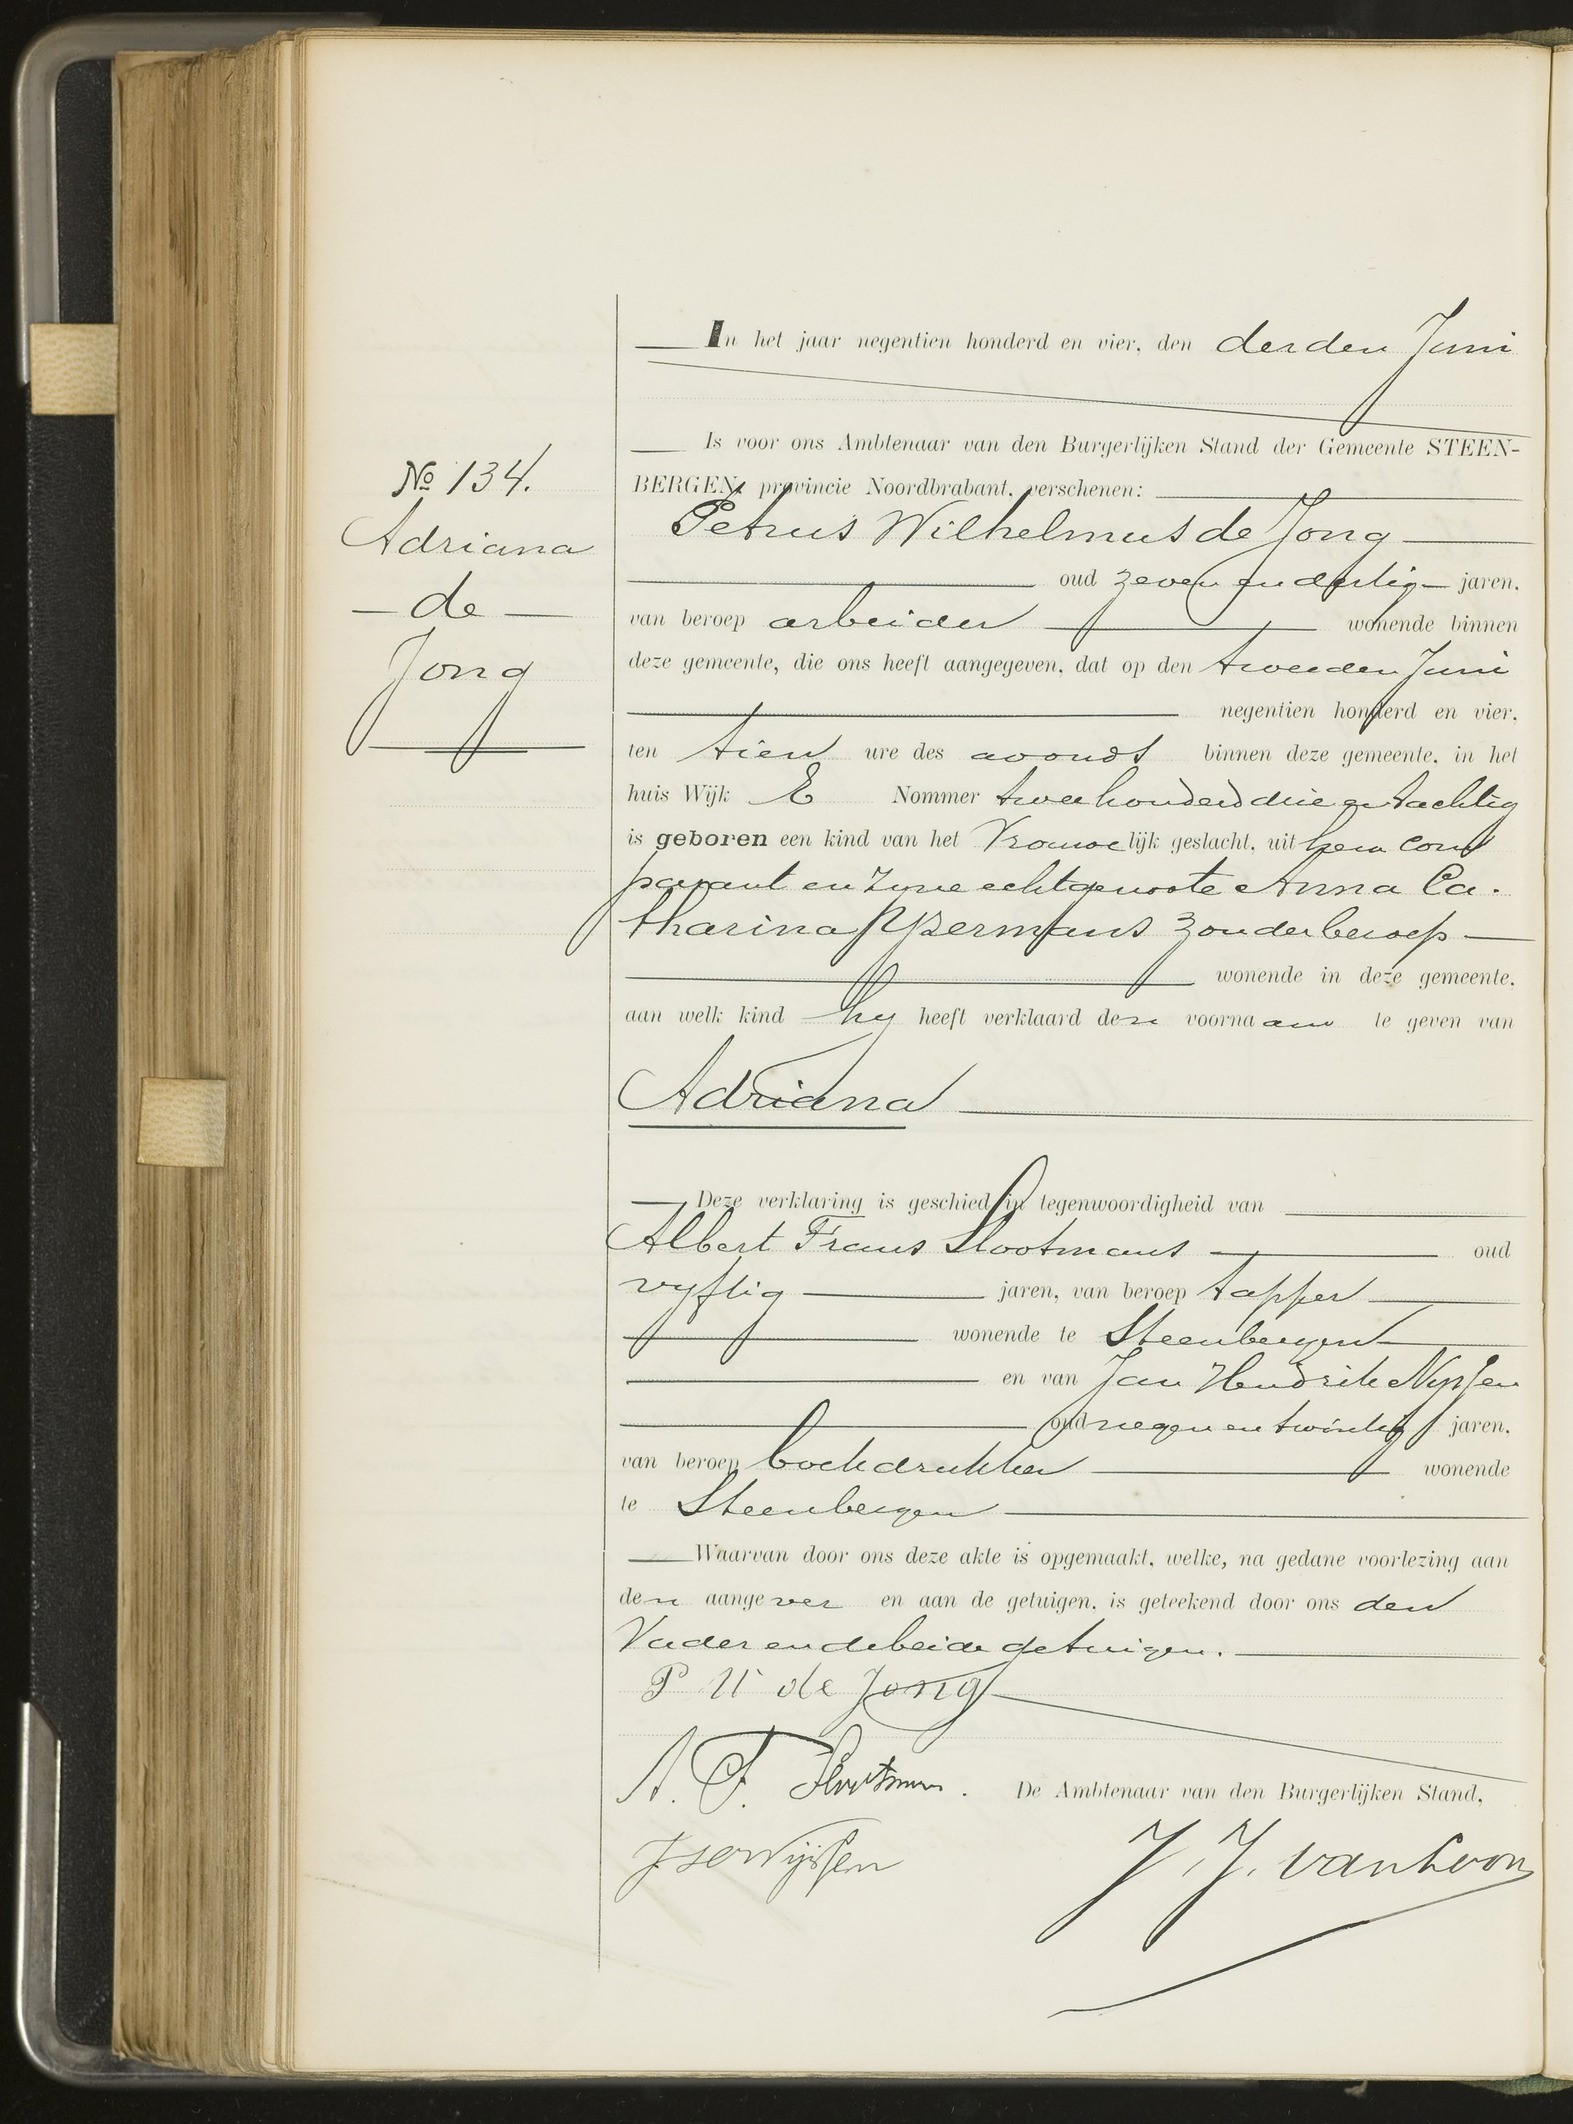 № 134.
Adriana
de
Jong
In het jaar negentien honderd en vier, den derden Juni
Is voor ons Ambtenaar van den Burgerlijken Stand der Gemeente STEEN-
BERGEN, provincie Noordbrabant, verschenen:
Petrus Wilhelmus de Jong
oud zeven en dertig jaren,
van beroep arbeider wonende binnen
deze gemeente, die ons heeft aangegeven, dat op den tweeden Juni
negentien honderd en vier,
ten tien ure des avonds binnen deze gemeente, in het
huis Wijk E Nommer tweehonderd drie en tachtig
is geboren een kind van het Vrouwelijk geslacht, uit hem com
parant en zyne echtgenoote Anna Ca-
tharina Yzermans zonder beroep
wonende in deze gemeente,
aan welk kind hy heeft verklaard den voornaam te geven van
Adriana
Deze verklaring is geschied in tegenwoordigheid van
Albert Frans Slootmans oud
vyftig jaren, van beroep tapper
wonende te Steenbergen
en van Jan Hendrik Nyssen
oud negen en twintig jaren,
van beroep boekdrukker wonende
te Steenbergen
Waarvan door ons deze akte is opgemaakt, welke, na gedane voorlezing aan
den aangever en aan de getuigen, is geteekend door ons den
Vader en de beide getuigen.
P W de Jong
A. F. Slootmans.
De Ambtenaar van den Burgerlijken Stand,
J H Nijssen
J. J. van Loon